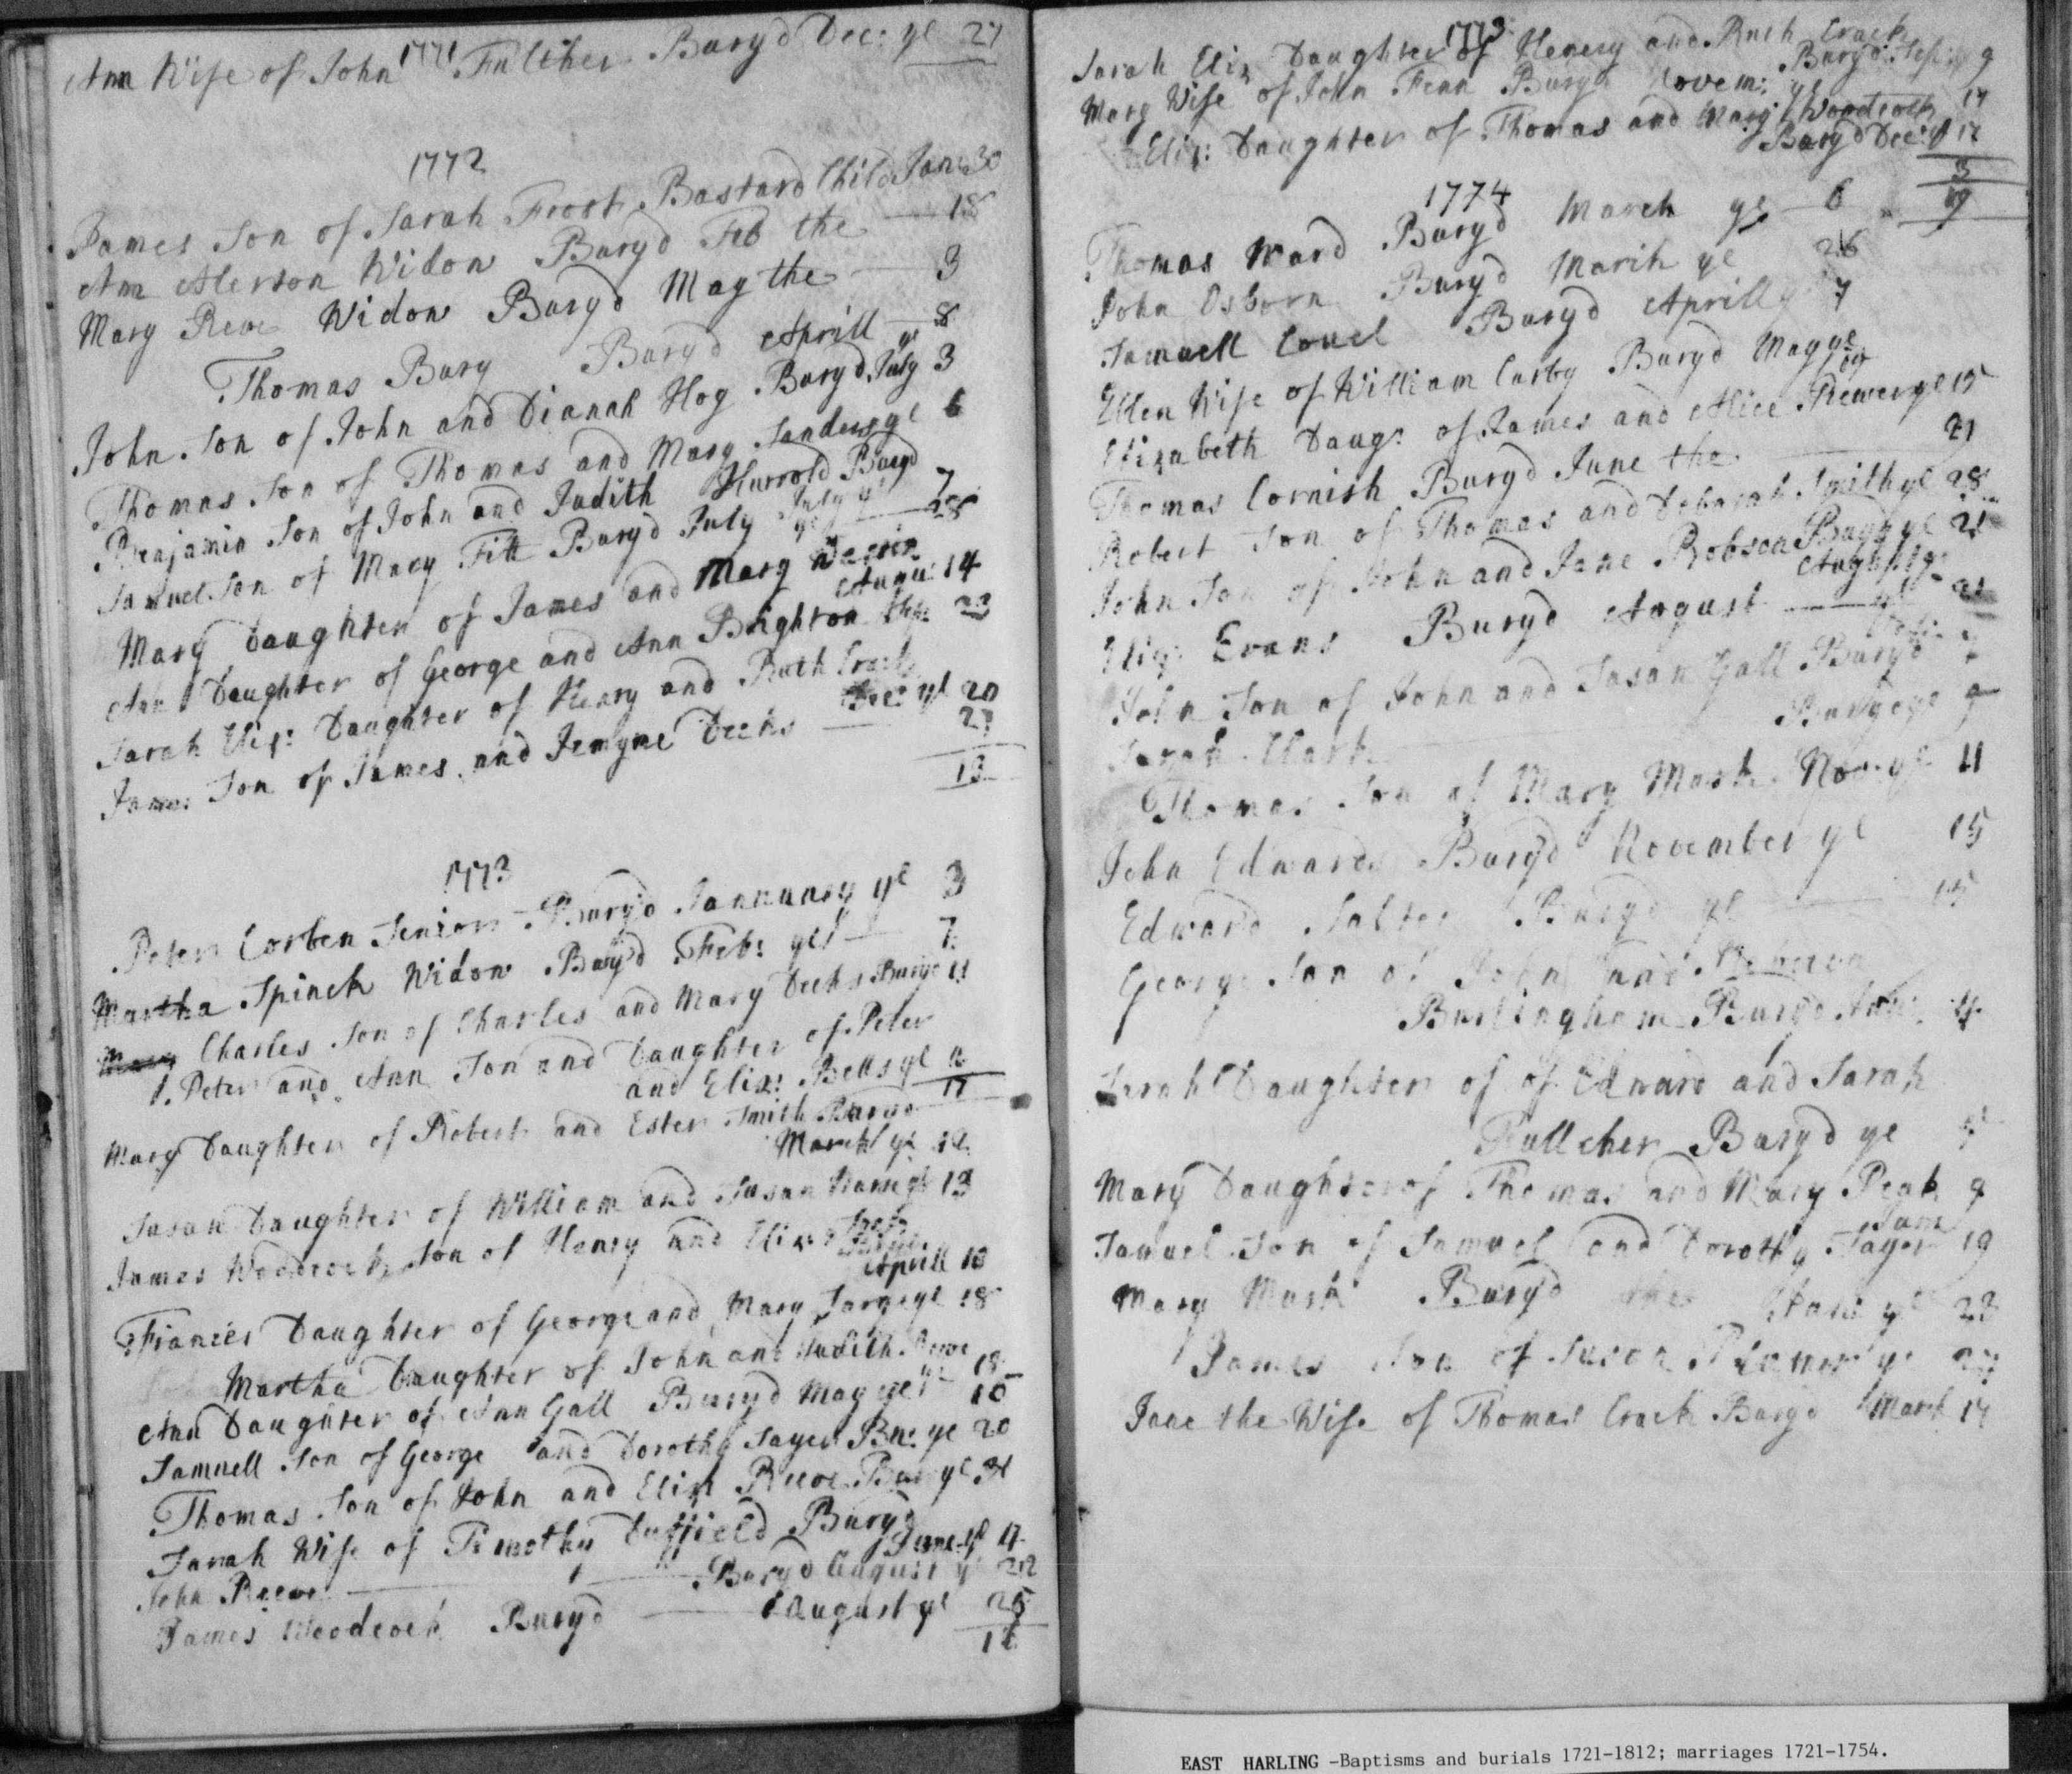 1771
Ann Wife of John Fulcher Buryd Dec: ye 27
1772
James Son of Sarah Frost Bastard Child Jan: 30
Ann Alerton Widow Buryd Feb the 18
Mary Reve Widow Buryd May the 3
Thomas Bury Buryd Aprill ye 8
John Son of John and Dianah Hog Buryd July 3
Thomas Son of Thomas and Mary Sanders ye 6
Benjamin Son of John and Judith Hurrold Buryd
July ye 7
Samuel Son of Mary Fitt Buryd July ye 28
Mary Daughter of James and Mary
Augu: 14
Ann Daughter of George and Ann Brighton Sep: 23
Sarah Eliz: Daughter of Henry and Ruth Crack
Dec: ye 20
James Son of James and Jemyne Deeks 27
13
1773
Peter Corben Senior Buryd Jannuary ye 3
Martha Spinck Widow Buryd Feb: ye 7
Mary Charles Son of Charles and Mary Deeks Buryd 11
Peter and Ann Son and Daughter of Peter
and Eliz: Bells ye
17
Mary Daughter of Robert and Ester Smith Buryd
March ye 12
Susan Daughter of William and Susan 13
James Woodcock Son of Henry and Eliz:
Aprill 13
Frances Daughter of George and Mary ye 18
Martha Daughter of John and Judith
ye 18
Ann Daughter of Ann Gall Buryd May ye 10
Samuell Son of George and Dorothy Sayer Bu: ye 20
Thomas Son of John and Eliz Reeve Bur ye 31
Sarah Wife of Timothy Duffield Buryd
June ye 11
John Reeve Buryd August ye 22
James Woodcock Buryd August ye 25
1773
Sarah Eliz Daughter of Henery and Ruth Crack
Buryd 9
Mary Wife of John Fenn Buryd Novem: ye 14
Eliz: Daughter of Thomas and Mary Woodcock
Buryd Dec: ye 12
3
19
1774
Thomas Ward Buryd March ye 6
John Osborn Buryd March ye 26
Samuell Couel Buryd Aprill 7
Ellen Wife of William Corby Buryd May ye
Elizabeth Daug: of James and Alice ye 15
Thomas Cornish Buryd June the 21
Robert Son of Thomas and Deborah Smith ye 28
John Son of John and Jane Robson Buryd ye 21
Eliz: Evans Buryd August ye
John Son of John and Susan Gall Buryd
Clark Buryd ye 9
Thomas Son of Mary Mash Nov: ye 11
John Edwards Buryd November ye 15
Edward Salter Buryd ye 15
George Son of John and Rebecca
Burlingham Buryd
Sarah Daughter of of Edward and Sarah
Fullcher Buryd ye
Mary Daughter of Thomas and Mary Peak 9
Samuel Son of Samuel and Dorothy Sayer 19
Mary Mash Buryd ye 23
James Son of Susan ye
Jane the Wife of Thomas Crack Buryd March 14
EAST HARLING -Baptisms and burials 1721-1812; marriages 1721-1754.